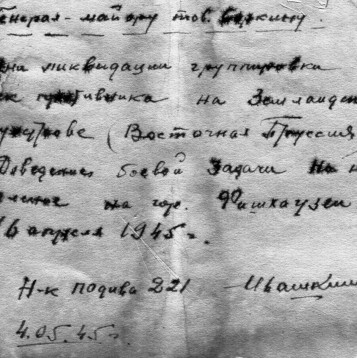 Генерал-майору тов. Боркину.
ни ликвидации группировки
ск противника на Земланден
уострове (Восточная Пруссия
Доведение боевой задачи на н
ление на гор. Фишхаузен
16 апреля 1945 г.
Н-к подива 221 Ивашкин
4.05.45 г.